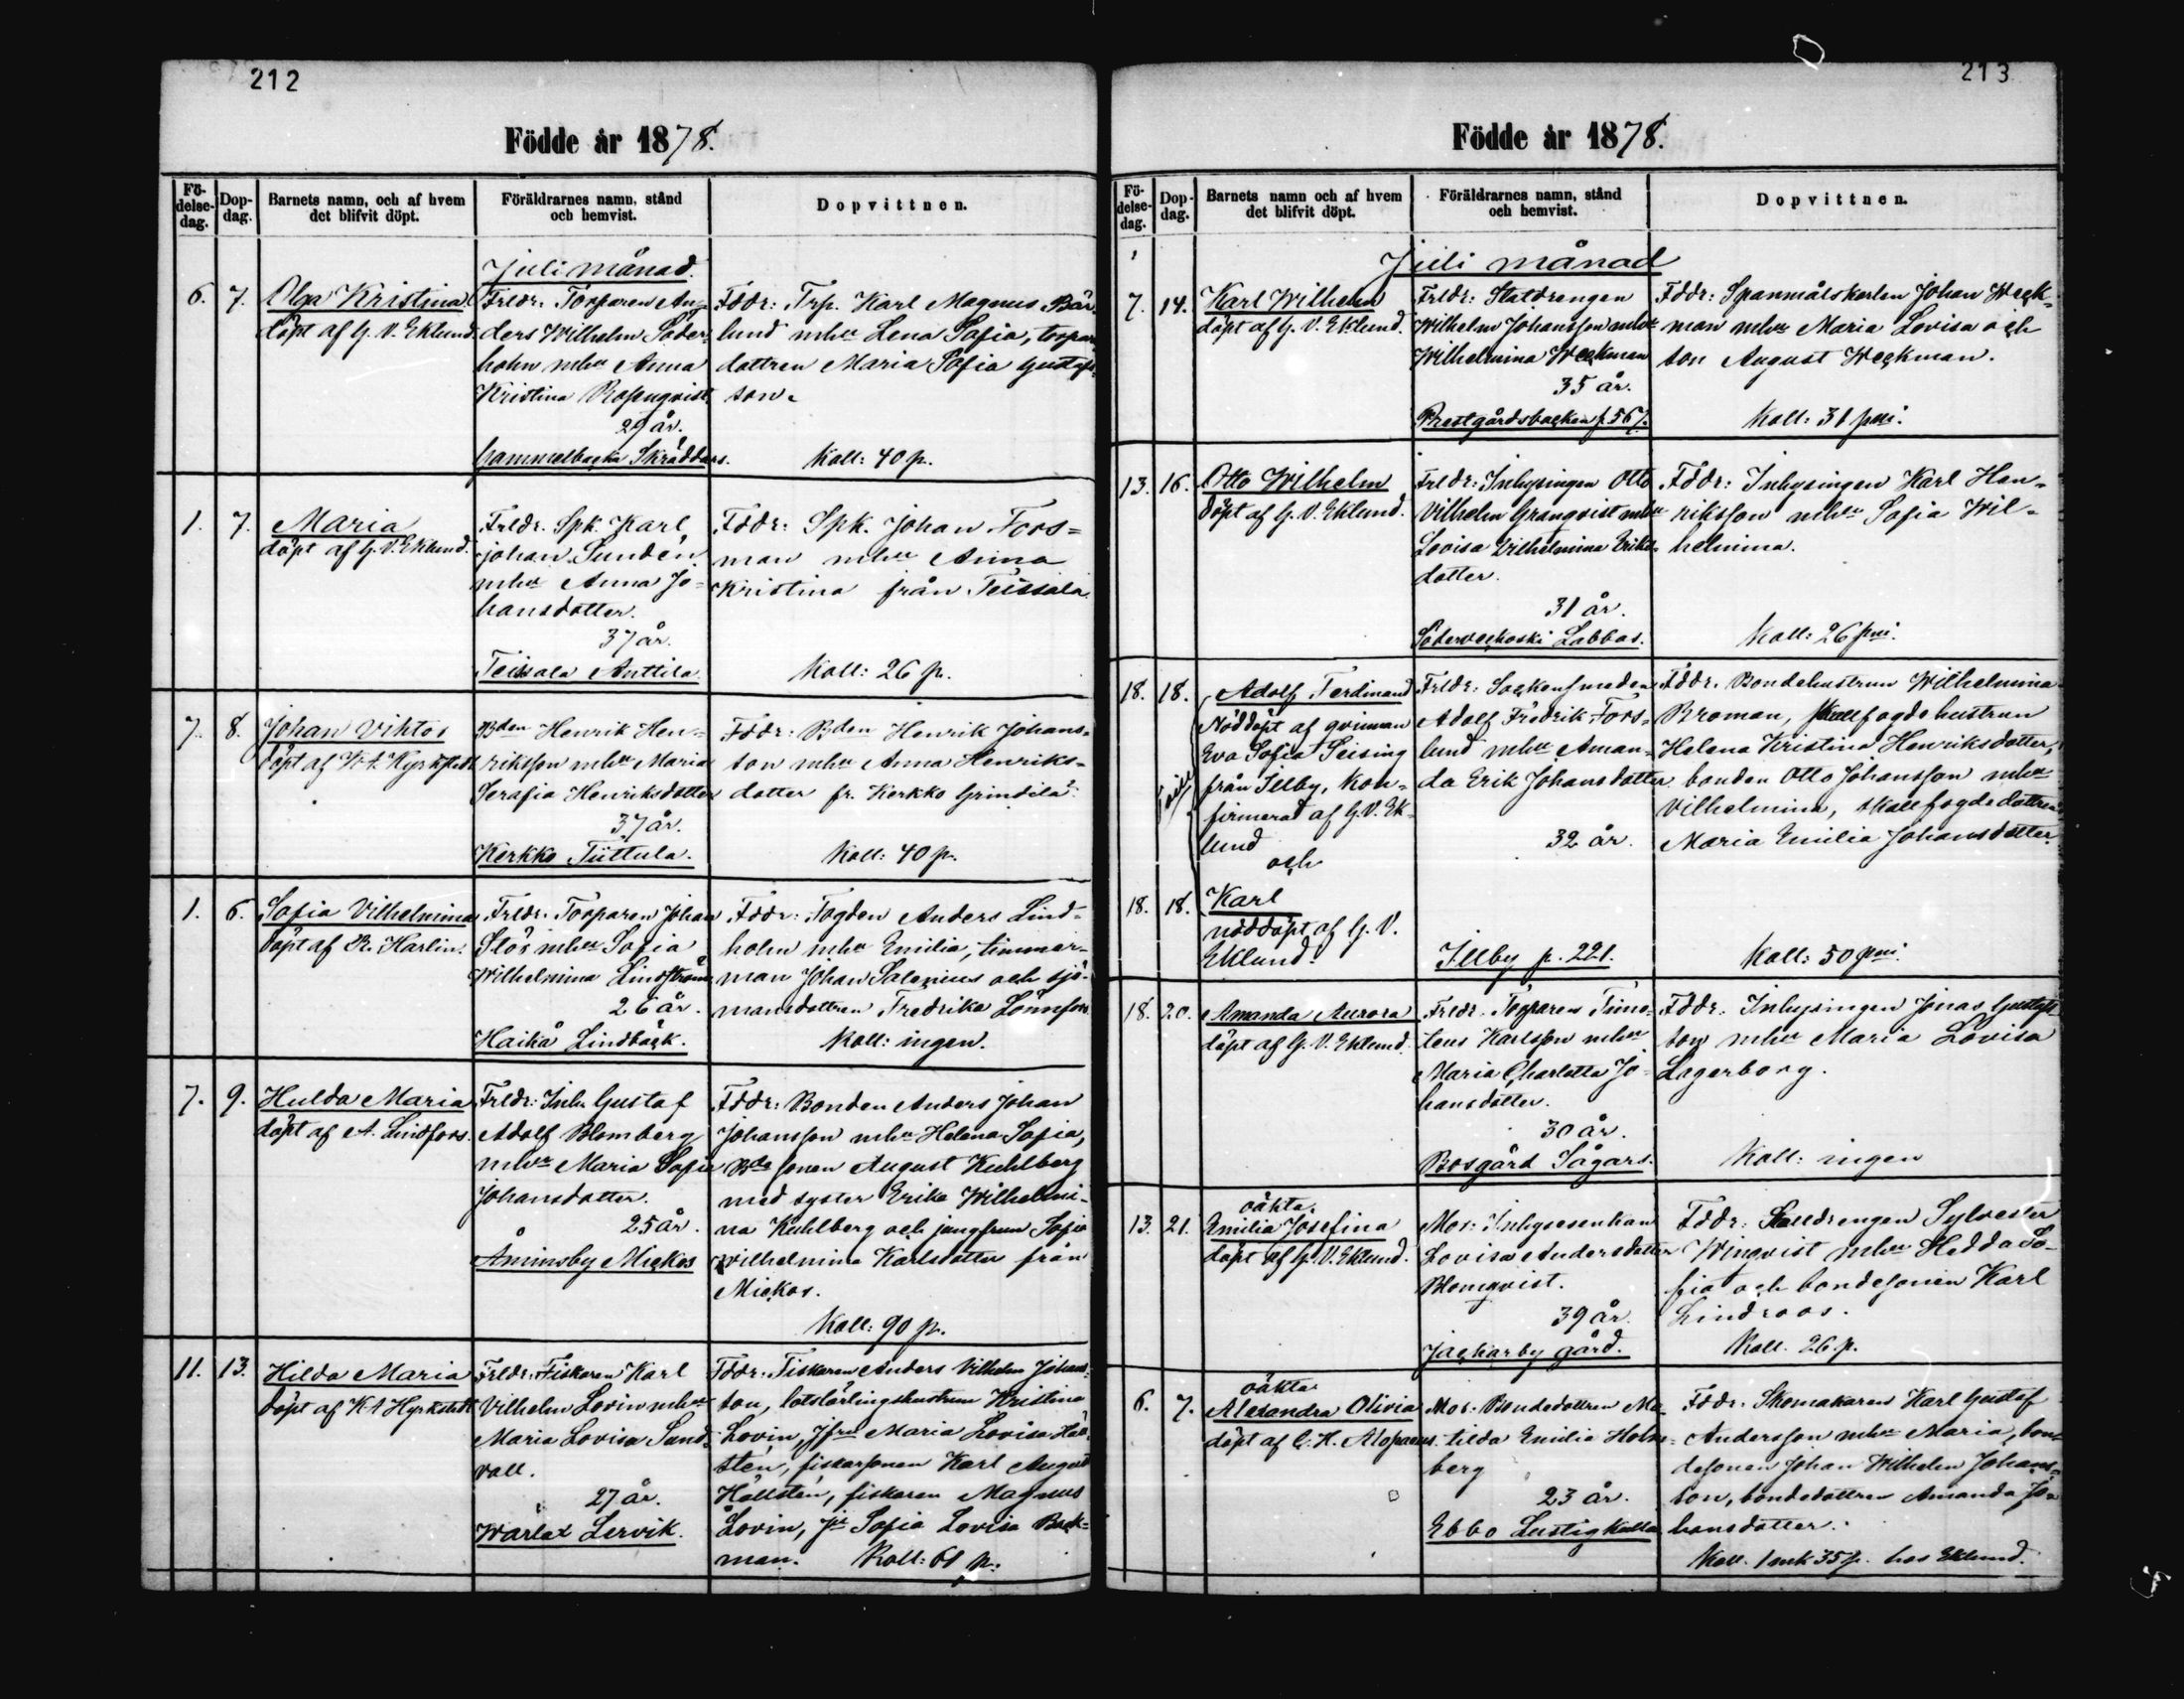 212
Födde år 1878.
Fö-
delse-
dag.
Dop-
dag.
Barnets namn, och af hvem
det blifvit döpt.
Föräldrarnes namn, stånd
och hemvist.
Dopvittnen.
Juli månad.
6. 7. Olga Kristina
döpt af G. V. Eklund.
Frldr: Torparen An-
ders Wilhelm Söder-
holm mhu Anna
Kristina Rosnqvist,
29 år.
Gammelbacka Skräddars.
Fddr: Trp. Karl Magnus Bär-
lund mhu Lena Sofia, torpar-
dottren Maria Sofia Gustafs-
son.
Koll: 40 p.
1. 7. Maria
döpt af G. V. Eklund.
Frldr. Spk. Karl
Johan Sundén
mhu Anna Jo-
hansdotter.
37 år.
Teissala Anttila.
Fddr: Spk. Johan Fors-
man mhu Anna
Kristina från Teissala
Koll: 26 p.
7. 8. Johan Viktor
döpt af K A Hyrkstedt
Bden Henrik Hen-
riksson mhu Maria
Serafia Henriksdotter
37 år.
Kerkko Tüttula.
Fddr: Bden Henrik Johans-
son mhu Anna Henriks-
dotter fr. Kerkko Grindilä.
Koll: 40 p.
1. 6. Sofia Vilhelmina
döpt af R. Harlin.
Frldr. Torparen Johan
Slös mhu Sofia
Wilhelmina Lindström
26 år.
Haikå Lindbäck.
Fddr: Fogden Anders Lind-
holm mhu Emilia, timmer-
man Johan Salenius och sjö-
mansdottren Fredrika Lönnfors.
Koll: ingen.
7. 9. Hulda Maria
döpt af A. Lindfors.
Frldr: Inh. Gustaf
Adolf Blomberg
mhu Maria Sofia
Johansdotter.
25 år.
Åminsby Mickos
Fddr: Bonden Anders Johan
Johansson mhu Helena Sofia,
Bde sonen August Kuhlberg
med syster Erika Wilhelmi-
na Kuhlberg och jungfrun Sofia
Wilhelmina Karlsdotter från
Mickos.
Koll: 90 p.
11. 13. Hilda Maria
döpt af K A Hyrkstedt
Frldr: Fiskaren Karl
Vilhelm Lovin mhu
Maria Lovisa Sund-
vall.
27 år.
Warlax Lervik.
Fddr: Fiskaren Anders Vilhelm Johans-
son, lotslärlingshustrun Kristina
Lovin, Jfru Maria Lovisa Häll-
stén, fiskarsonen Karl August
Hällstén, fiskaren Magnus
Lovin, Jfr Sofia Lovisa Back-
man. Koll: 61 p.
213
Födde år 1878.
Fö-
delse-
dag.
Dop-
dag.
Barnets namn och af hvem
det blifvit döpt.
Föräldrarnes namn, stånd
och hemvist.
Dopvittnen.
Juli månad
7. 14. Karl Wilhelm
döpt af G. V. Eklund.
Frldr: Statdrengen
Wilhelm Johansson mhu
Wilhelmina Weckman
35 år.
Prestgårdsbacken p. 567.
Fddr: Spanmålskarlen Johan Weck-
man mhu Maria Lovisa och
son August Weckman.
Koll: 31 pni.
13. 16. Otto Wilhelm
döpt af G. V. Eklund.
Frldr: Inhysingen Otto
Vilhelm Granqvist mhu
Lovisa Vilhelmina Eriks-
dotter.
31 år.
Söderveckoski Labbas.
Fddr: Inhysingen Karl Hen-
riksson mhu Sofia Wil-
helmina.
Koll: 26 pni.
18. 18. Adolf Ferdinand
Nöddöpt af qvinnan
Eva Sofia Seising
från Illby, kon-
firmerad af G. V. Ek-
lund
och
18. 18. Karl
nöddöpt af G. V.
Eklund.
Frldr: Sockensmeden
Adolf Fredrik Fors-
lund mhu Aman-
da Erik Johansdotter
32 år.
Illby p. 221.
Fddr. Bondehustrun Wilhelmina
Broman, skallfogdehustrun
Helena Kristina Henriksdotter,
bonden Otto Johansson mhu
Vilhelmina, skallfogdedottren
Maria Emilia Johansdotter.
Koll: 50 pni.
18. 20. Amanda Aurora
döpt af G. V. Eklund.
Frldr. Torparen Timo-
teus Karlsson mhu
Maria Charlotta Jo-
hansdotter.
30 år.
Bosgård Sågars.
Fddr. Inhysingen Jonas Gustafs-
son mhu Maria Lovisa
Lagerborg.
Koll: ingen
13. 21. oäkta.
Emilia Josefina
döpt af G. V. Eklund.
Mor: Inhysesenkan
Lovisa Andersdotter
Blomqvist.
39 år.
Jackarby gård.
Fddr: Stalldrengen Sylvester
Winqvist mhu Hedda So-
fia och bondesonen Karl
Lindroos.
Koll. 26 p.
6. 7. oäkta
Alexandra Olivia
döpt af C. H. Alopaeus.
Mor. Bondedottren Ma-
tilda Emilia Holm-
berg
23 år.
Ebbo Lustigkulla
Fddr. Skomakaren Karl Gustaf
Andersson mhu Maria, bon-
desonen Johan Wilhelm Johans-
son, bondedottren Amanda Jo-
hansdotter.
Koll. 1 mk 35 p. hos Eklund.